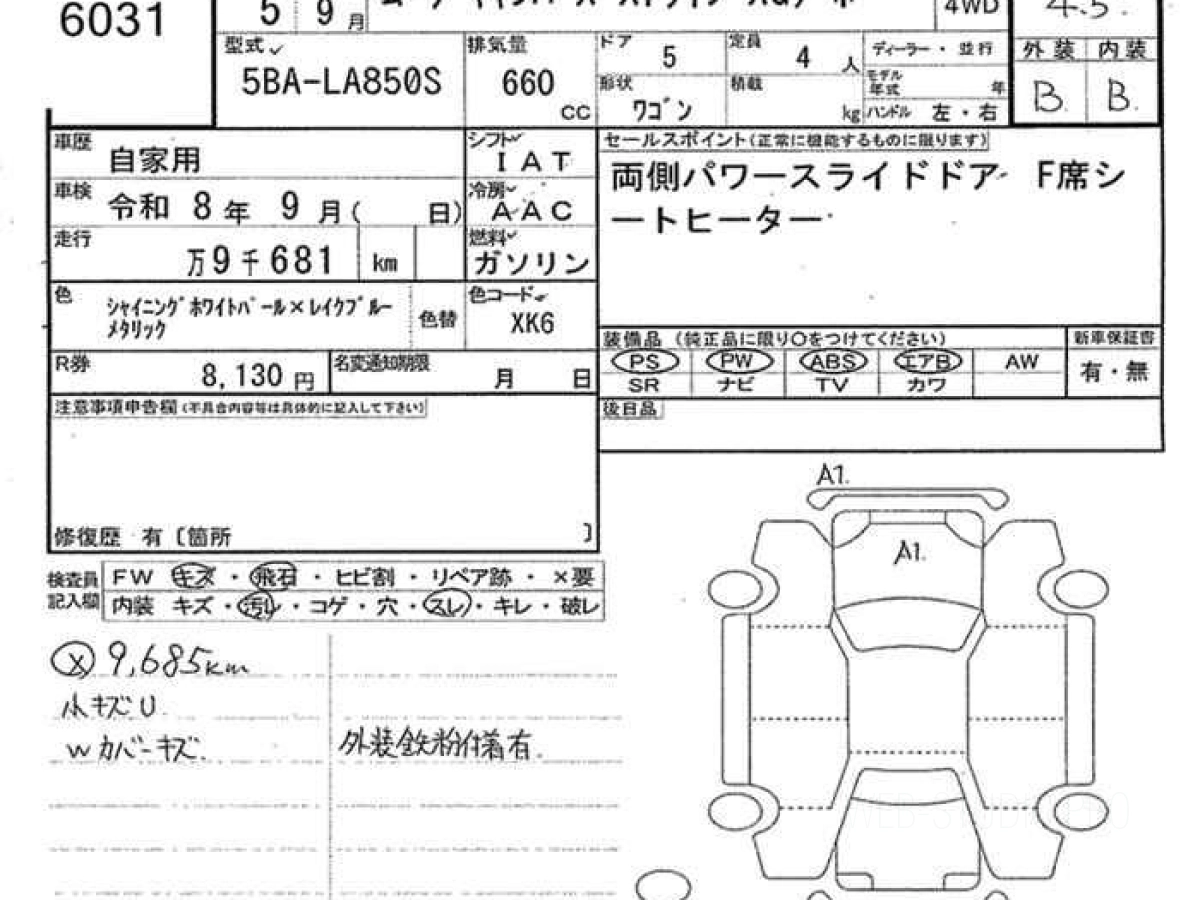 6031
5 9月
4WD
4.5.
型式
5BA-LA850S
排気量
660
CC
ドア
5
定員
4 人
形状
ワゴン
積載
kg
ディーラー・並行
モデル年式 年
ハンドル 左・右
外装 内装
B B
車歴
自家用
シフト
IAT
車検
令和 8年 9月( 日)
冷房
AAC
走行
万9千681 km
燃料
ガソリン
色
シャイニングホワイトパール×レイクブルー
メタリック
色替
色コード
XK6
R券
8,130 円
名変通知期限
月 日
セールスポイント(正常に機能するものに限ります)
両側パワースライドドア F席シ
ートヒーター
装備品 (純正品に限り○をつけてください)
新車保証書
PS PW ABS エアB AW
有・無
SR ナビ TV カワ
後日品
注意事項申告欄(不具合内容等は具体的に記入して下さい)
修復歴 有〔箇所 〕
検査員
記入欄
FW キズ・飛石・ヒビ割・リペア跡・×要
内装 キズ・汚レ・コゲ・穴・スレ・キレ・破レ
x 9,685km
小キズU
Wカバーキズ.
外装鉄粉付着有.
A1.
A1.